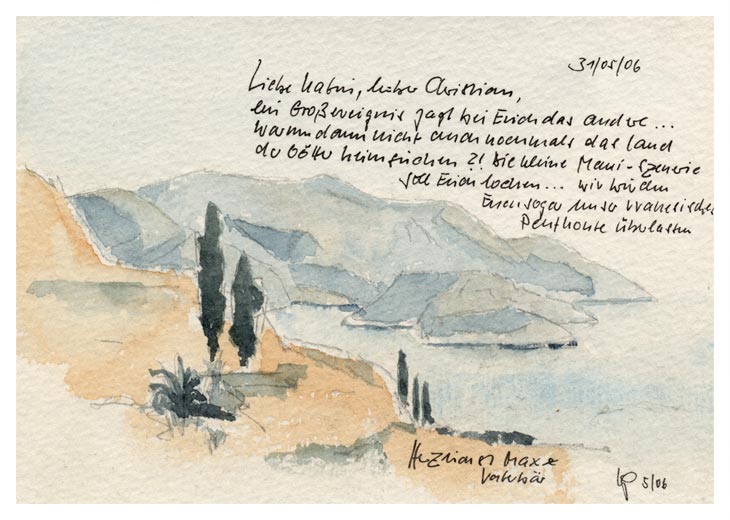 31/05/06
Liebe Katrin, lieber Christian,
ein Großereignis jagt bei Euch das andere...
warum dann nicht auch nochmals das Land
der Götter heimsuchen ?! Die kleine Mani-Szenerie
soll Euch locken... wir würden
Euch sogar unser
Penthouse überlassen
Herzlichst
5/06